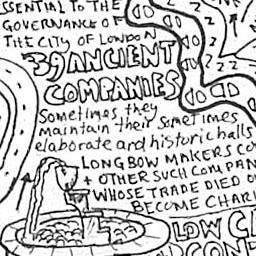 SSENTIAL TO THE
GOVERNANCE OF
THE CITY OF LONDON
39 ANCIENT
COMPANIES
Sometimes they
maintain their sometimes
elaborate and historic halls
LONGBOW MAKERS CO
+ OTHER SUCH COMPAN
WHOSE TRADE DIED O
BECOME CHARI
LOW C
CON